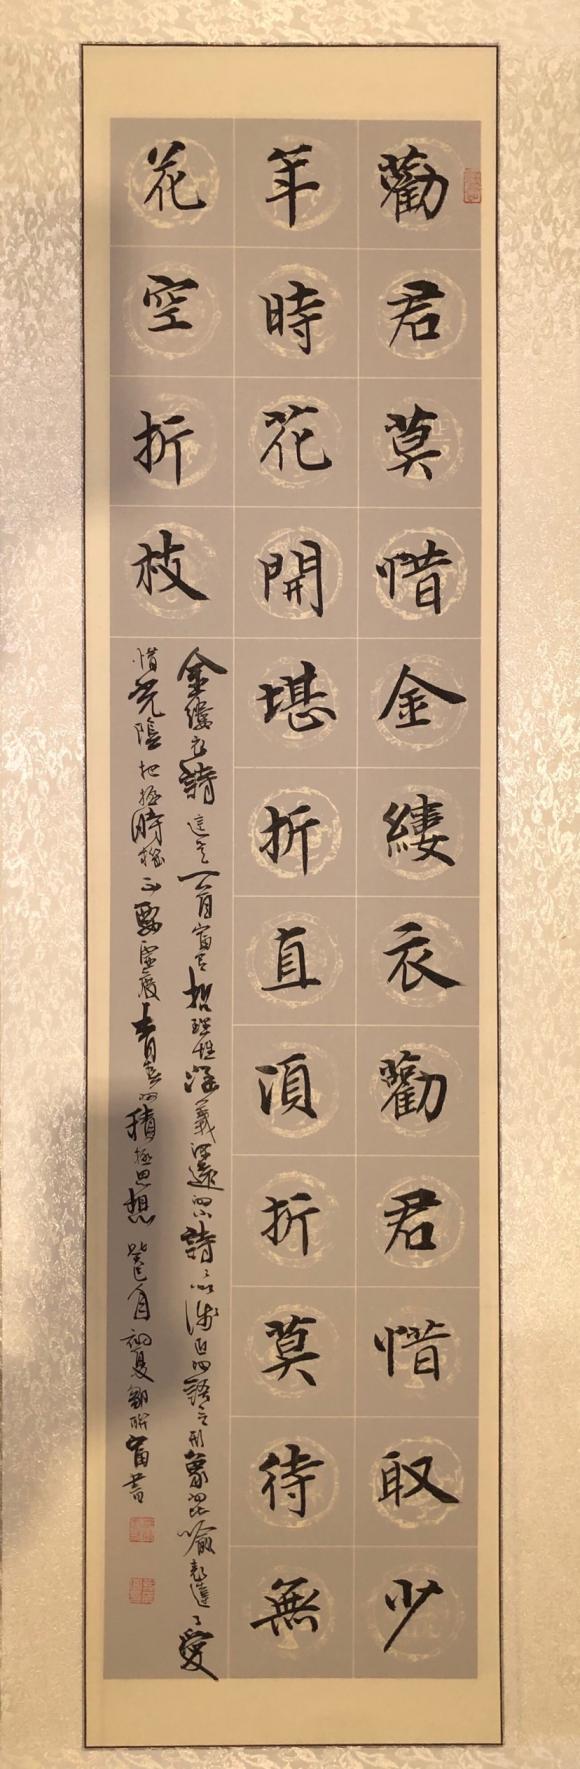 勸君莫惜金縷衣勸君惜取少
年時花開堪折直須折莫待無
花空折枝
金縷衣詩這是一首富有哲理性涵義深遠的小詩以淺近的語言形象比喻表達了愛
惜光陰把握時機不要虛度青春的積極思想 癸巳年初夏 聯富書